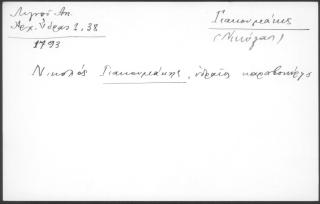 Λιγνού Αντ.
Αρχ. Ύδρας 1, 38
1793
Γιακουμάκης
(Νικόλας)
Νικολός Γιακουμάκης, υδραίος καραβοκύρης